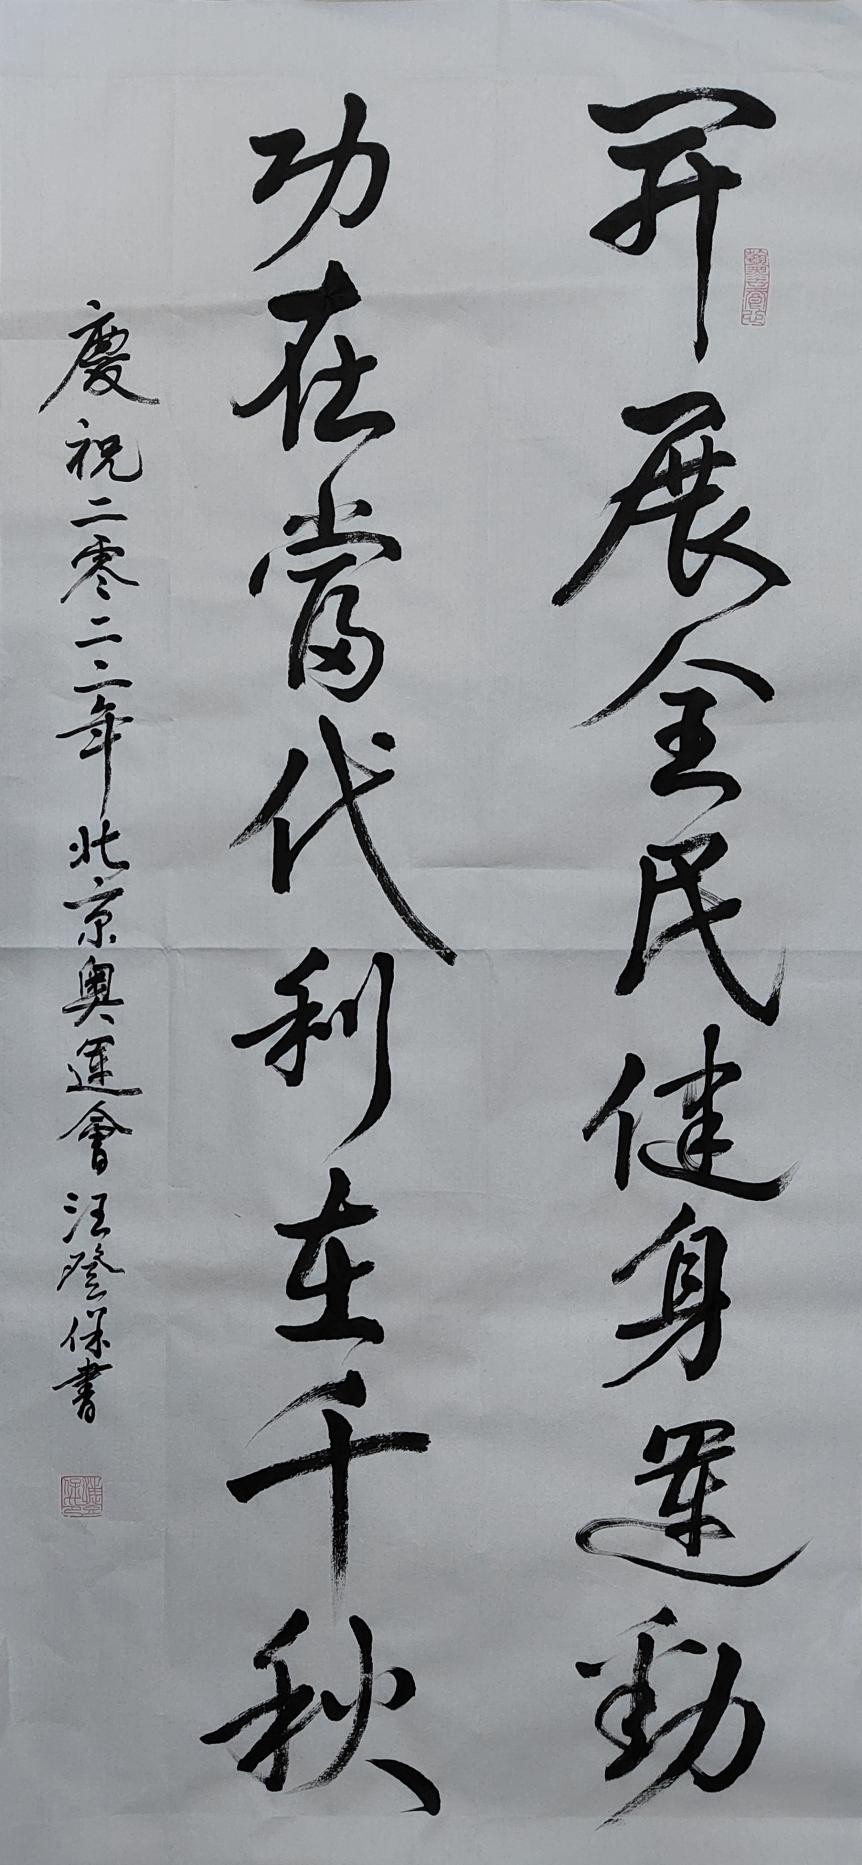 開展全民健身運動
功在當代利在千秋
慶祝二零二二年北京奥運會汪登保書